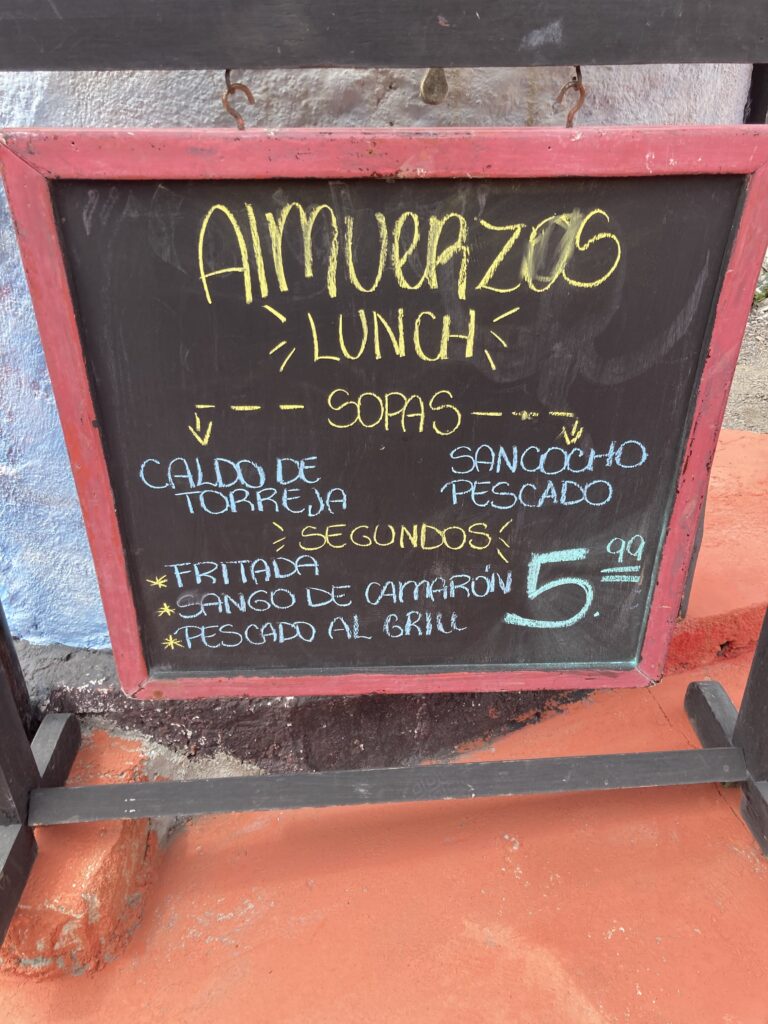 AlmUERZOS
LUNCH
SOPAS
CALDO DE TORREJA
SANCOCHO PESCADO
SEGUNDOS
* FRITADA
* SANGO DE CAMARÓN
* PESCADO AL GRILL
5.99